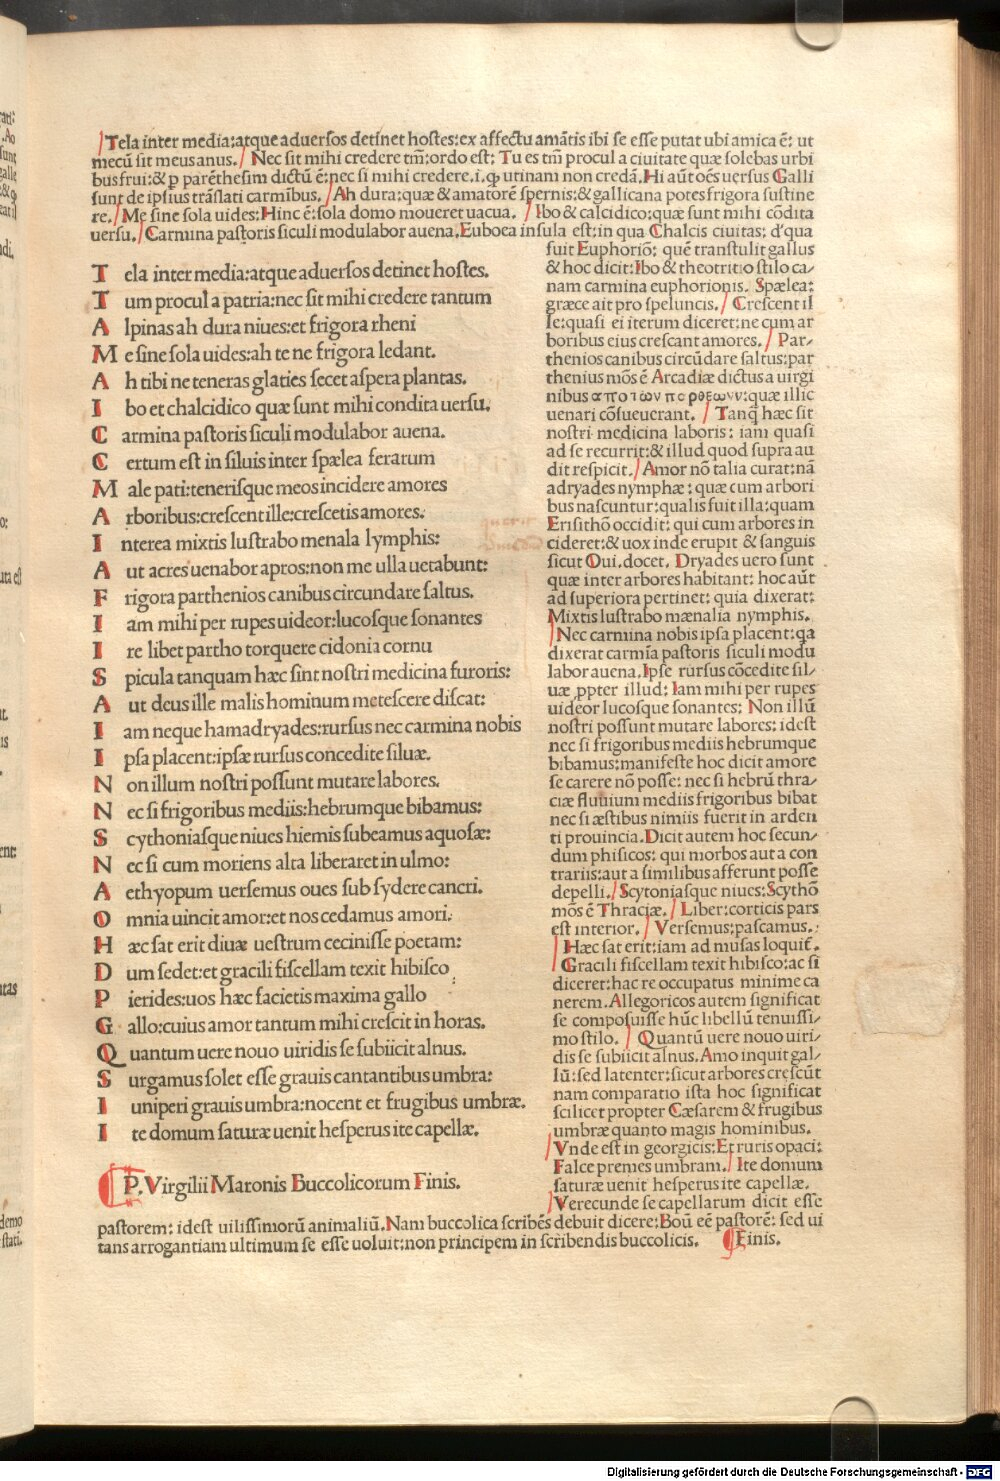 Tela inter media:atque aduersos detinet hostes:ex affectu amātis ibi se esse putat ubi amica ē: ut
mecū sit meus anus. Nec sit mihi credere tm̄:ordo est: Tu es tm̄ procul a ciuitate quæ solebas urbi
bus frui:& p parēthesim dictū ē:nec si mihi credere.i.ꝙ utinam non credā.Hi aūt oēs uersus Galli
sunt de ipsius trāslati carmībus. Ah dura:quæ & amatorē spernis:& gallicana potes frigora sustine
re. Me sine sola uides:Hinc ē:sola domo moueret uacua. Ibo & calcidico:quæ sunt mihi cōdita
uersu. Carmina pastoris siculi modulabor auena.Euboea insula est:in qua Chalcis ciuitas: d'qua
Tela inter media:atque aduersos detinet hostes.
Tum procul a patria:nec sit mihi credere tantum
Alpinas ah dura niues:et frigora rheni
Me sine sola uides:ah te ne frigora ledant.
Ah tibi ne teneras glaties secet aspera plantas.
Ibo et chalcidico quæ sunt mihi condita uersu.
Carmina pastoris siculi modulabor auena.
Certum est in siluis inter spælea ferarum
Male pati:tenerisque meos incidere amores
Arboribus:crescent ille:crescetis amores.
Interea mixtis lustrabo menala lymphis:
Aut acres uenabor apros:non me ulla uetabunt:
Frigora parthenios canibus circundare saltus.
Iam mihi per rupes uideor:lucosque sonantes
Ire libet partho torquere cidonia cornu
Spicula tanquam hæc sint nostri medicina furoris:
Aut deus ille malis hominum metescere discat:
Iam neque hamadryades:rursus nec carmina nobis
Ipsa placent:ipsæ rursus concedite siluæ.
Non illum nostri possunt mutare labores.
Nec si frigoribus mediis:hebrumque bibamus:
Scythoniasque niues hiemis subeamus aquosæ:
Nec si cum moriens alta liberaret in ulmo:
Aethyopum uersemus oues sub sydere cancri.
Omnia uincit amor:et nos cedamus amori.
Hæc sat erit diuæ uestrum cecinisse poetam:
Dum sedet:et gracili fiscellam texit hibisco
Pierides:uos hæc facietis maxima gallo
Gallo:cuius amor tantum mihi crescit in horas.
Quantum uere nouo uiridis se subiicit alnus.
Surgamus solet esse grauis cantantibus umbra:
Iuniperi grauis umbra:nocent et frugibus umbræ.
Ite domum saturæ uenit hesperus ite capellæ.
P.Virgilii Maronis Buccolicorum Finis.
fuit Euphoriō: quē transtulit gallus
& hoc dicit:Ibo & theotritio stilo ca-
nam carmina euphorionis. Spælea:
græce ait pro speluncis. Crescent il
le:quasi ei iterum diceret:ne cum ar
boribus eius crescant amores. Par-
thenios canibus circūdare saltus:par
thenius mōs ē Arcadiæ dictus a uirgi
nibus :quæ illic
uenari cōsueuerant. Tanq̄ hæc sit
nostri medicina laboris: iam quasi
ad se recurrit:& illud quod supra au
dit respicit. Amor nō talia curat:nā
adryades nymphæ: quæ cum arbori
bus nascuntur:qualis fuit illa:quam
Erisithō occidit: qui cum arbores in
cideret:& uox inde erupit & sanguis
sicut Oui.docet. Dryades uero sunt
quæ inter arbores habitant: hoc aūt
ad superiora pertinet: quia dixerat:
Mixtis lustrabo mænalia nymphis.
Nec carmina nobis ipsa placent:qa
dixerat carmīa pastoris siculi modu
labor auena.Ipse rursus cōcedite sil-
uæ ꝓpter illud: Iam mihi per rupes
uideor lucosque sonantes: Non illū
nostri possunt mutare labores: idest
nec si frigoribus mediis hebrumque
bibamus:manifeste hoc dicit amore
se carere nō posse: nec si hebrū thra-
ciæ fluuium mediis frigoribus bibat
nec si æstibus nimiis fuerit in arden
ti prouincia.Dicit autem hoc secun-
dum phisicos: qui morbos aut a con
trariis:aut a similibus afferunt posse
depelli. Scytoniasque niues:Scythō
mōs ē Thraciæ. Liber:corticis pars
est interior. Versemus:pascamus.
Hæc sat erit:iam ad musas loquit̄.
Gracili fiscellam texit hibisco:ac si
diceret:hac re occupatus minime ca
nerem.Allegoricos autem significat
se composuisse hūc libellū tenuissi-
mo stilo. Quantū uere nouo uiri-
dis se subiicit alnus.Amo inquit gal-
lū:sed latenter:sicut arbores crescūt
nam comparatio ista hoc significat
scilicet propter Cæsarem & frugibus
umbræ quanto magis hominibus.
Vnde est in georgicis:Et ruris opaci:
Falce premes umbram. Ite domum
saturæ uenit hesperus ite capellæ.
Verecunde se capellarum dicit esse
pastorem: idest uilissimorū animaliū.Nam buccolica scribēs debuit dicere:Boū eē pastorē: sed ui
tans arrogantiam ultimum se esse uoluit:non principem in scribendis buccolicis. Finis.
Digitalisierung gefördert durch die Deutsche Forschungsgemeinschaft - DFG